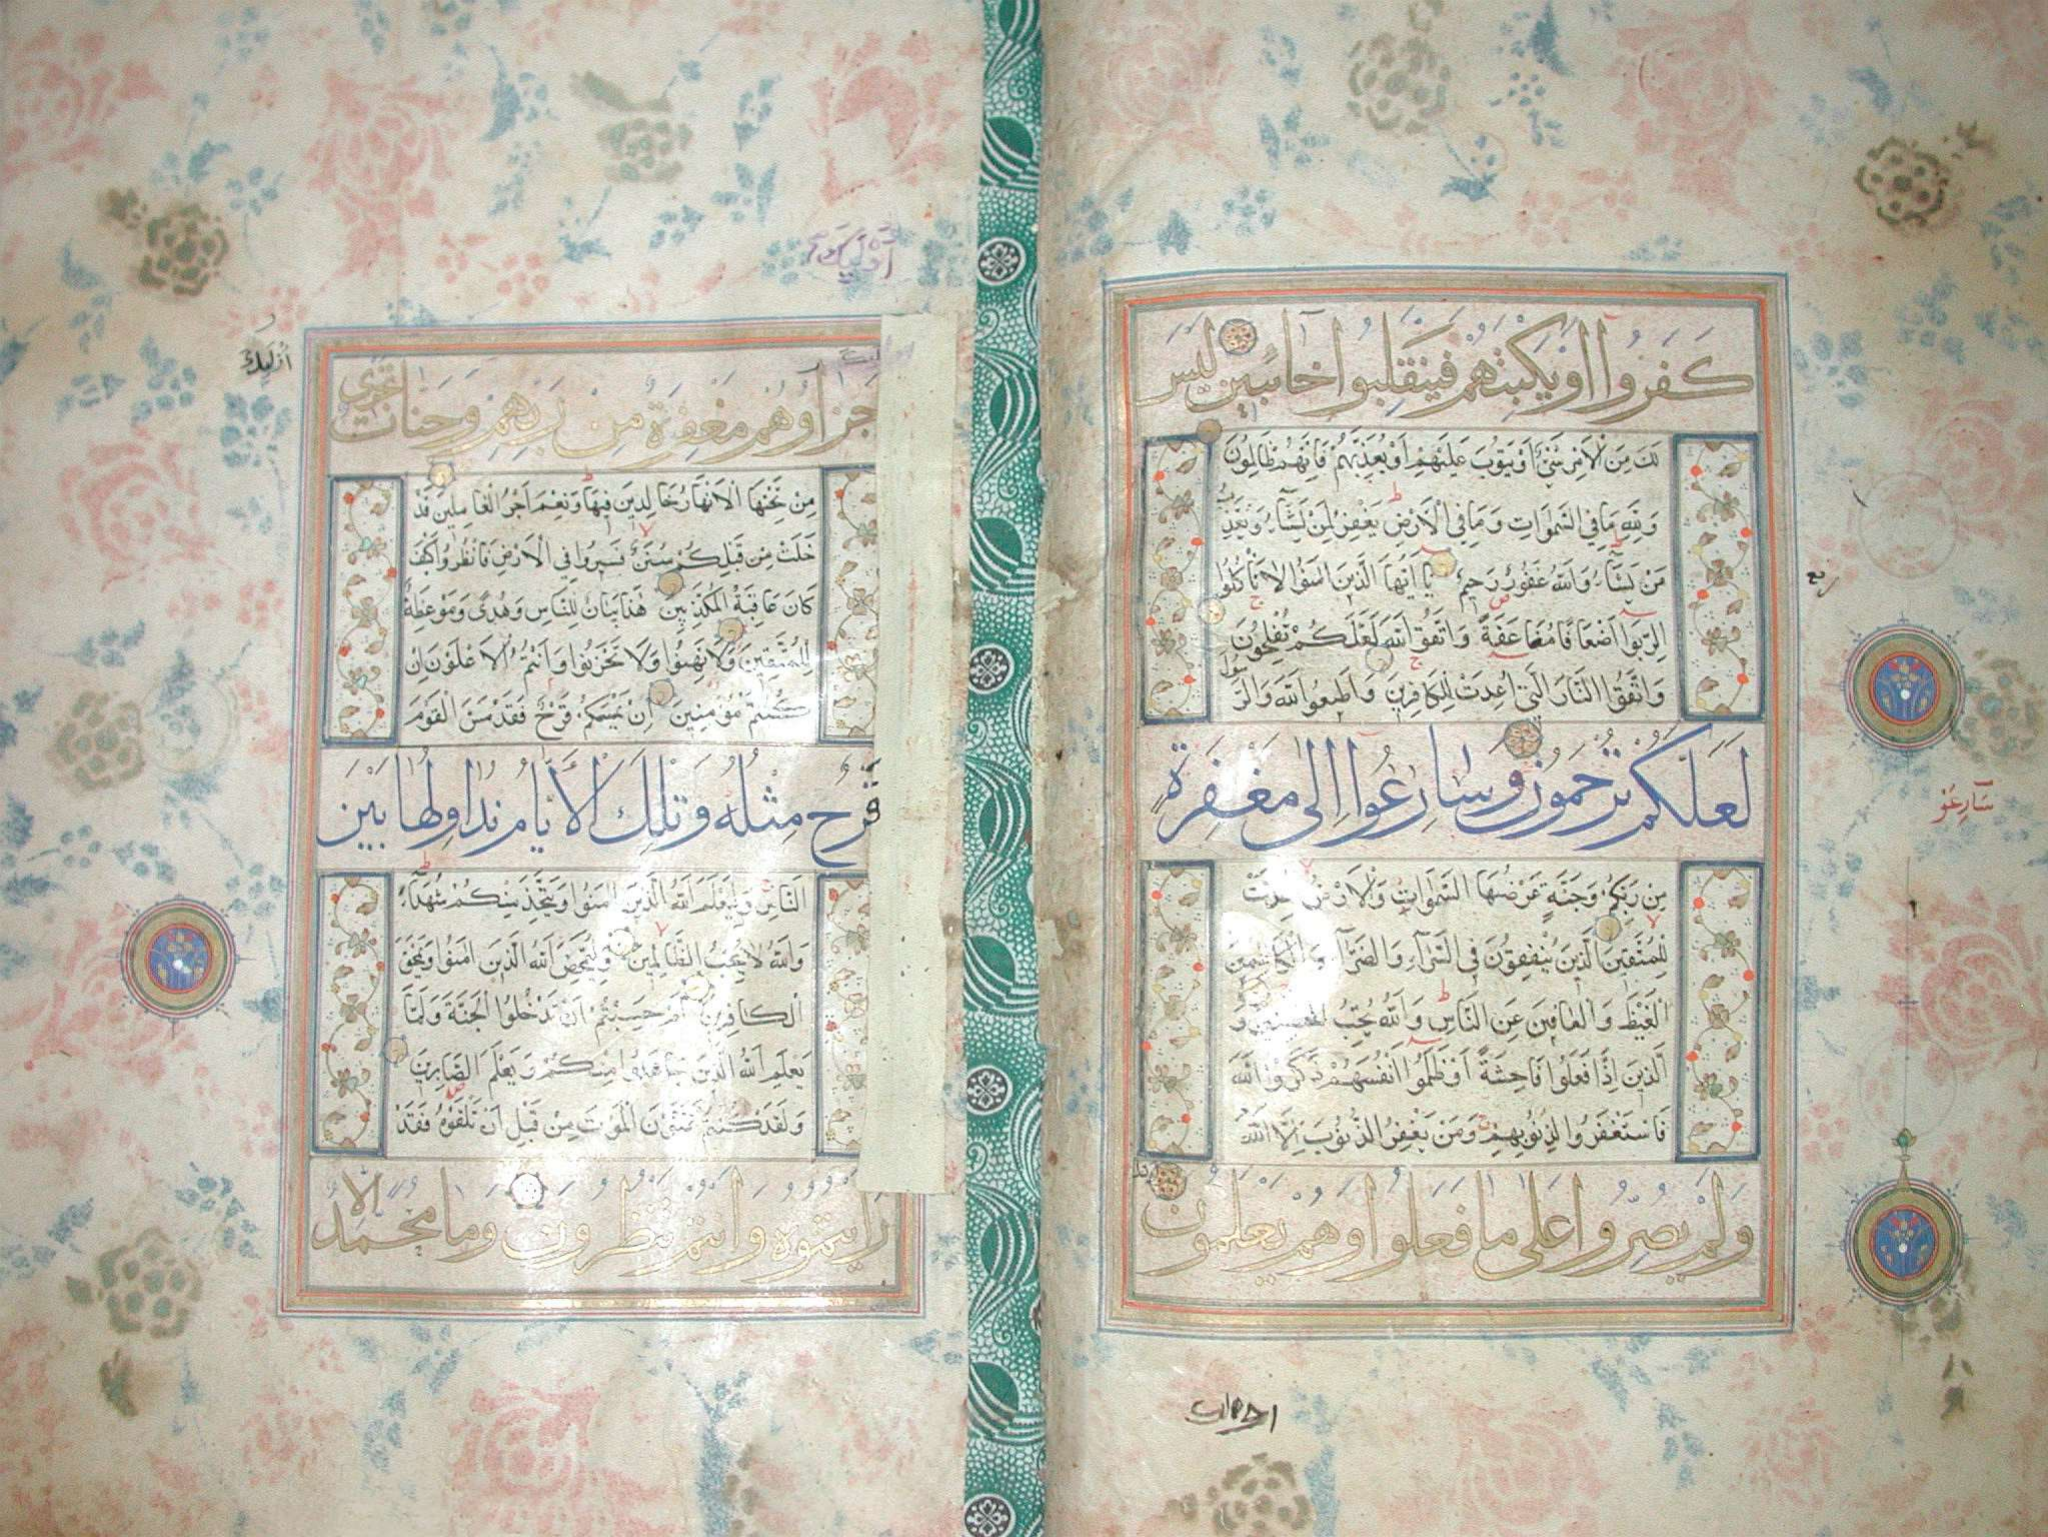 كَفَرُوا أَوْ يَكْبِتَهُمْ فَيَنْقَلِبُوا خَائِبِينَ لَيْسَ
لَكَ مِنَ الْأَمْرِ شَيْءٌ أَوْ يَتُوبَ عَلَيْهِمْ أَوْ يُعَذِّبَهُمْ فَإِنَّهُمْ ظَالِمُونَ
وَلِلَّهِ مَا فِي السَّمٰوَاتِ وَمَا فِي الْأَرْضِ يَغْفِرُ لِمَنْ يَشَآءُ وَيُعَذِّبُ
مَنْ يَشَآءُ وَاللَّهُ غَفُورٌ رَحِيمٌ يَا أَيُّهَا الَّذِينَ اٰمَنُوا لَا تَأْكُلُوا
الرِّبٰوا أَضْعَافًا مُضَاعَفَةً وَاتَّقُوا اللَّهَ لَعَلَّكُمْ تُفْلِحُونَ
وَاتَّقُوا النَّارَ الَّتِي أُعِدَّتْ لِلْكَافِرِينَ وَأَطِيعُوا اللَّهَ وَالرَّسُولَ
لَعَلَّكُمْ تُرْحَمُونَ وَسَارِعُوا إِلَى مَغْفِرَةٍ
مِنْ رَبِّكُمْ وَجَنَّةٍ عَرْضُهَا السَّمٰوَاتُ وَالْأَرْضُ أُعِدَّتْ
لِلْمُتَّقِينَ الَّذِينَ يُنْفِقُونَ فِي السَّرَّآءِ وَالضَّرَّآءِ وَالْكَاظِمِينَ
الْغَيْظَ وَالْعَافِينَ عَنِ النَّاسِ وَاللَّهُ يُحِبُّ الْمُحْسِنِينَ وَ
الَّذِينَ إِذَا فَعَلُوا فَاحِشَةً أَوْ ظَلَمُوا أَنْفُسَهُمْ ذَكَرُوا اللَّهَ
فَاسْتَغْفَرُوا لِذُنُوبِهِمْ وَمَنْ يَغْفِرُ الذُّنُوبَ إِلَّا اللَّهُ
وَلَمْ يُصِرُّوا عَلَى مَا فَعَلُوا وَهُمْ يَعْلَمُونَ
ربع
سَارِعُوْ
اولئك
أُوْلَئِكَ
أُوْلَئِكَ
جَزَاؤُهُمْ مَغْفِرَةٌ مِنْ رَبِّهِمْ وَجَنَّاتٌ تَجْرِي
مِنْ تَحْتِهَا الْأَنْهَارُ خَالِدِينَ فِيهَا وَنِعْمَ أَجْرُ الْعَامِلِينَ قَدْ
خَلَتْ مِنْ قَبْلِكُمْ سُنَنٌ فَسِيرُوا فِي الْأَرْضِ فَانْظُرُوا كَيْفَ
كَانَ عَاقِبَةُ الْمُكَذِّبِينَ هٰذَا بَيَانٌ لِلنَّاسِ وَهُدًى وَمَوْعِظَةٌ
لِلْمُتَّقِينَ وَلَا تَهِنُوا وَلَا تَحْزَنُوا وَأَنْتُمُ الْأَعْلَوْنَ إِنْ
كُنْتُمْ مُؤْمِنِينَ إِنْ يَمْسَسْكُمْ قَرْحٌ فَقَدْ مَسَّ الْقَوْمَ
قَرْحٌ مِثْلُهُ وَتِلْكَ الْأَيَّامُ نُدَاوِلُهَا بَيْنَ
النَّاسِ وَلِيَعْلَمَ اللَّهُ الَّذِينَ اٰمَنُوا وَيَتَّخِذَ مِنْكُمْ شُهَدَآءَ
وَاللَّهُ لَا يُحِبُّ الظَّالِمِينَ وَلِيُمَحِّصَ اللَّهُ الَّذِينَ اٰمَنُوا وَيَمْحَقَ
الْكَافِرِينَ أَمْ حَسِبْتُمْ أَنْ تَدْخُلُوا الْجَنَّةَ وَلَمَّا
يَعْلَمِ اللَّهُ الَّذِينَ جَاهَدُوا مِنْكُمْ وَيَعْلَمَ الصَّابِرِينَ
وَلَقَدْ كُنْتُمْ تَمَنَّوْنَ الْمَوْتَ مِنْ قَبْلِ أَنْ تَلْقَوْهُ فَقَدْ
رَأَيْتُمُوهُ وَأَنْتُمْ تَنْظُرُونَ وَمَا مُحَمَّدٌ إِلَّا